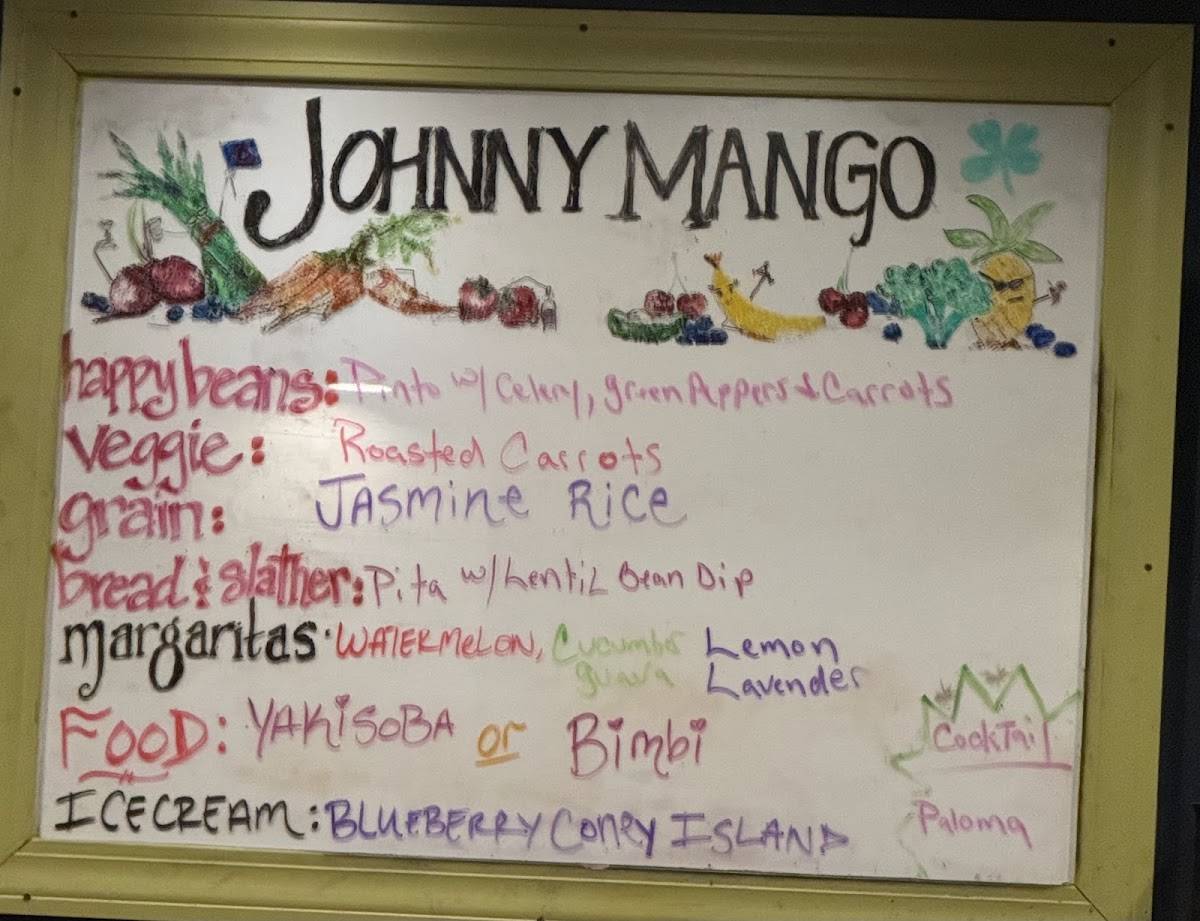 JOHNNY MANGO
happy beans: Pinto w/ Celery, green Peppers & Carrots
veggie: Roasted Carrots
grain: JASMINE RICE
bread & slather: Pita w/ Lentil Bean Dip
margaritas: WATERMELON, Cucumber Lemon
guava Lavender
FOOD: YAKISOBA or Bimbi
ICECREAM: BLUEBERRY Coney ISLAND
CockTail
Paloma